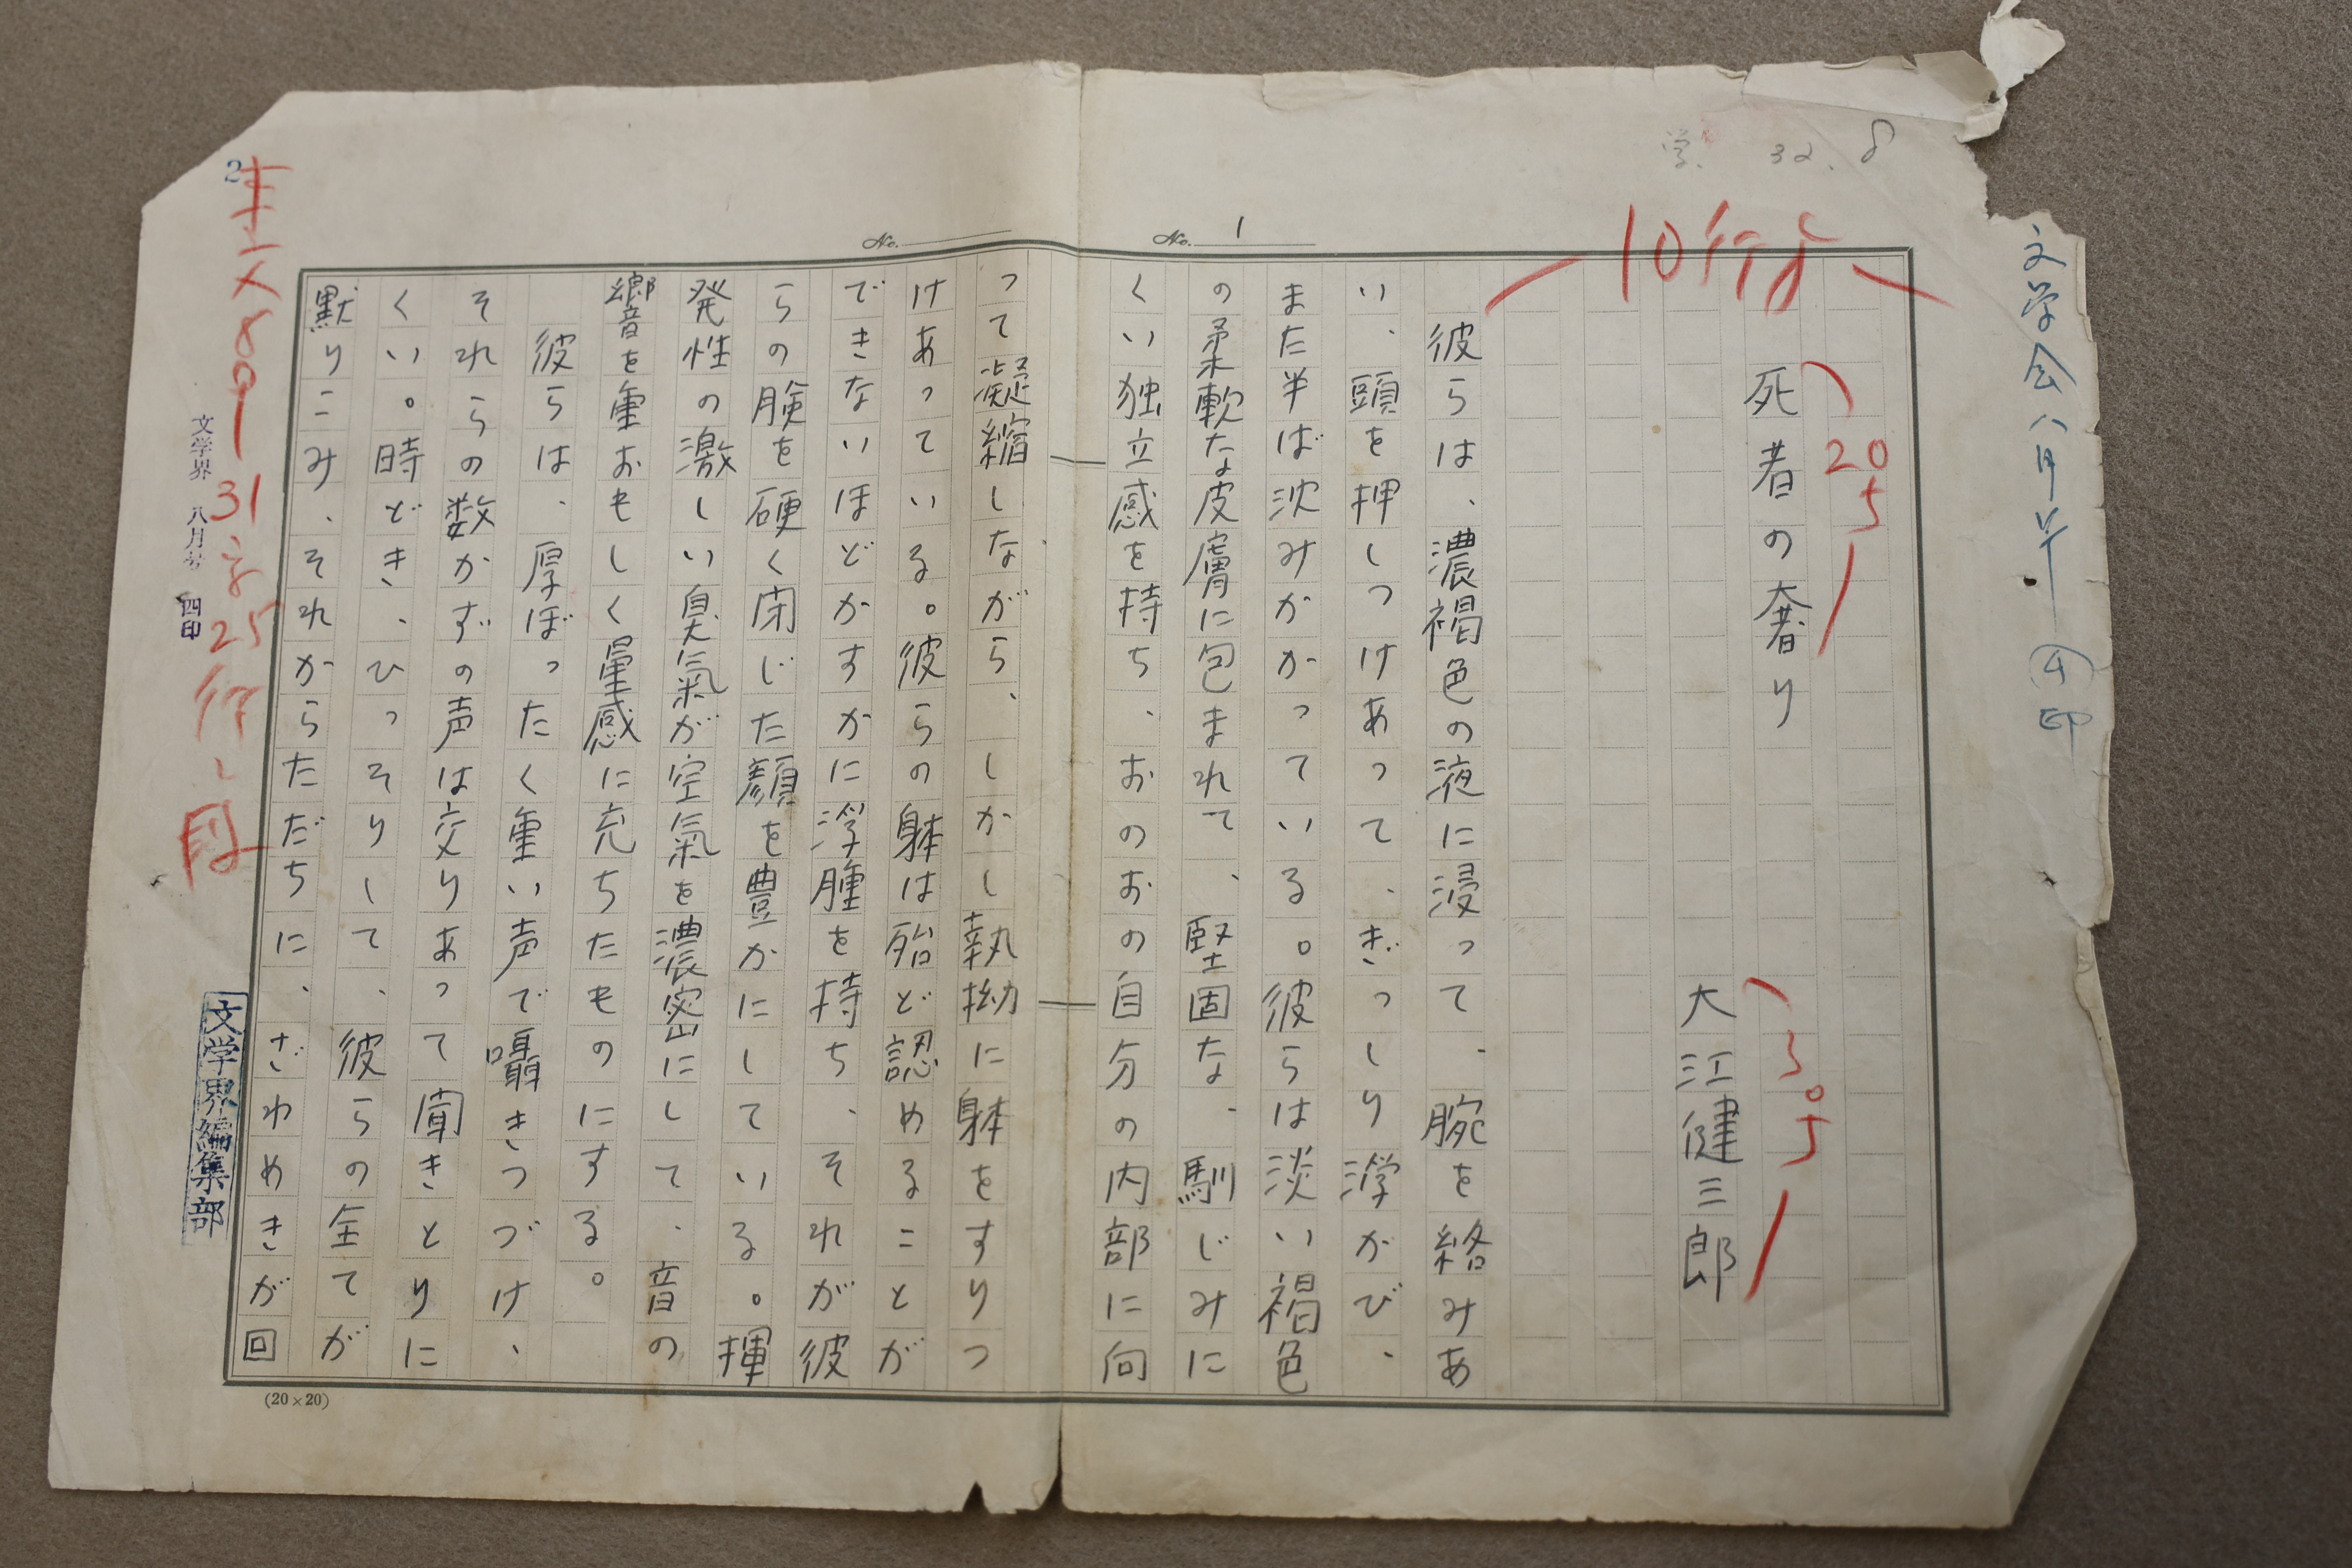 学. 32. 8
No. 1
No.
10行よ
文学会八月号 四印
死者の奢り
205
大江健三郎
彼らは、濃褐色の液に浸って、腕を絡みあ
い、頭を押しつけあって、ぎっしり浮かび、
また半ば沈みかかっている。彼らは淡い褐色
の柔軟な皮膚に包まれて、堅固な、馴じみに
くい独立感を持ち、おのおの自分の内部に向
って凝縮しながら、しかし執拗に躰をすりつ
けあっている。彼らの躰は殆ど認めることが
できないほどかすかに浮腫を持ち、それが彼
らの瞼を硬く閉じた顔を豊かにしている。揮
発性の激しい臭氣が空氣を濃密にして、音の
響を重おもしく量感に充ちたものにする。
彼らは、厚ぼったく重い声で囁きつづけ、
それらの数かずの声は交りあって聞きとりに
くい。時どき、ひっそりして、彼らの全てが
黙りこみ、それからただちに、ざわめきが回
2
31字25行
文学界 八月号 四印
文学界編集部
(20×20)